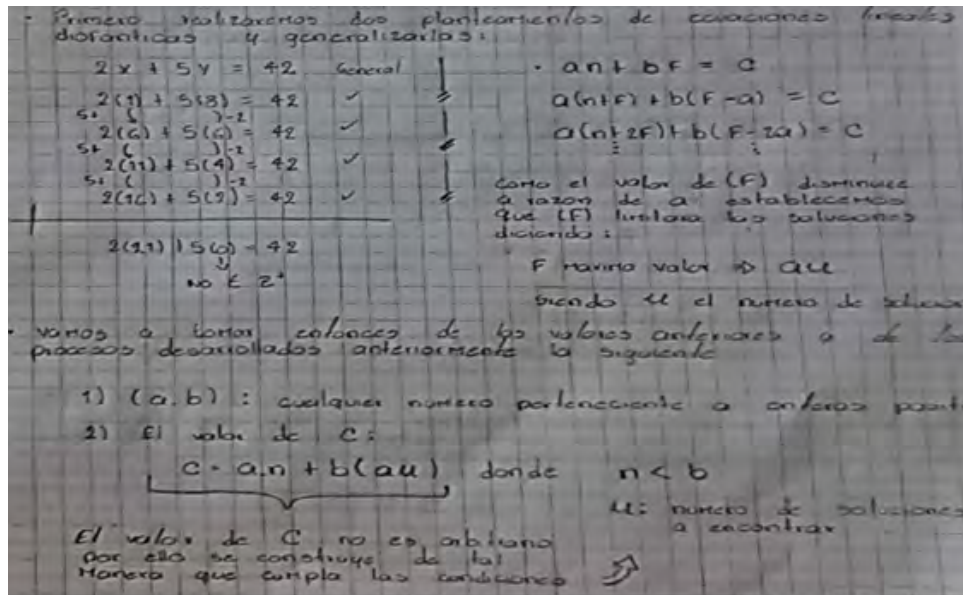 - Primero realizaremos dos planteamientos de ecuaciones lineales
diofanticas y generalizarlos:
2x + 5y = 42 General
2(1) + 5(8) = 42 ✓
5+ ( )-2
2(6) + 5(6) = 42 ✓
5+ ( )-2
2(11) + 5(4) = 42 ✓
5+ ( )-2
2(16) + 5(2) = 42 ✓
2(21) + 5(0) = 42
⇓
NO ∈ Z⁺
· an + bF = C
a(n+F) + b(F-a) = C
a(n+2F) + b(F-2a) = C
⋮ ⋮
como el valor de (F) disminuye
a razon de a establecemos
que (F) limitara las soluciones
diciendo:
F maximo valor ⇒ au
siendo u el numero de
· vamos a tomar entonces de los valores anteriores a de
procesos desarrollados anteriormente la siguiente
1) (a,b) : cualquier numero perteneciente a enteros
2) El valor de C:
C = a.n + b(au) donde n < b
u: numero de soluciones
a encontrar
El valor de C no es arbitario
por ello se construye de tal
manera que cumpla las condiciones